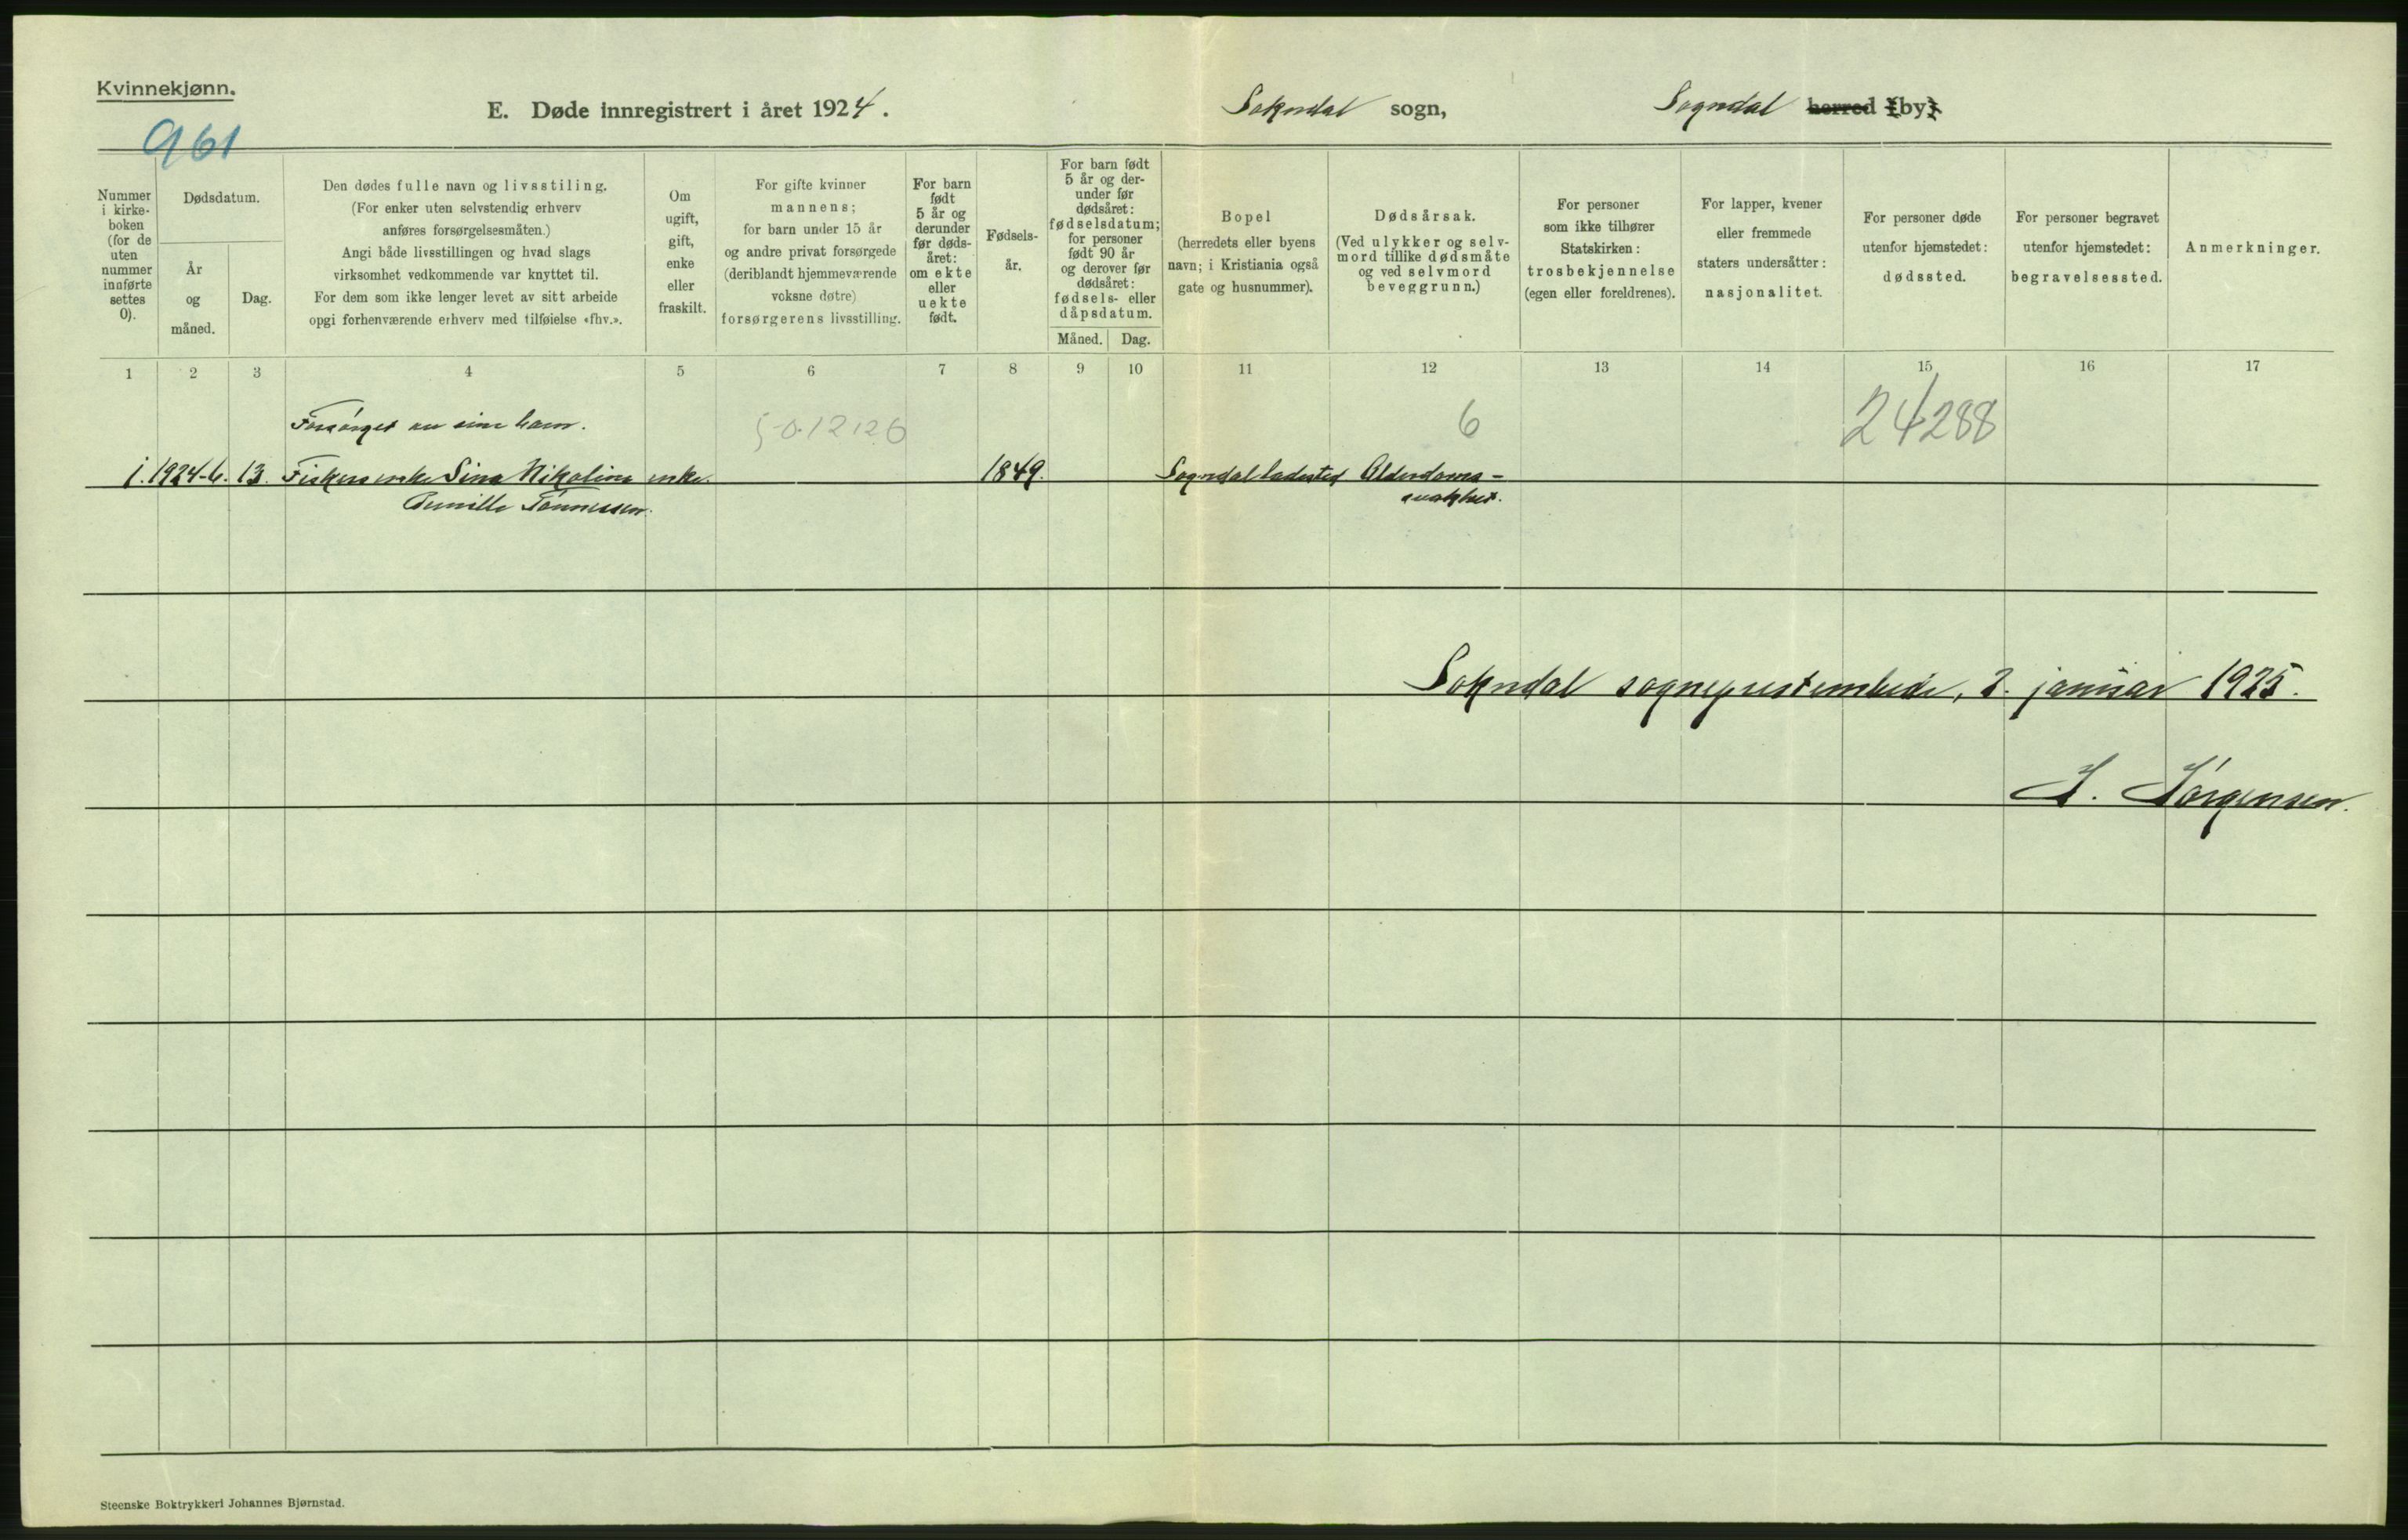 Kvinnekjønn.
E. Døde innregistrert i året 1924.
Sokndal sogn,
Sogndal herred (by)
961
Nummer
i kirke-
boken
(for de
uten
nummer
innførte
settes
0).
Dødsdatum.
År
og
måned.
Dag.
Den dødes fulle navn og livsstiling.
(For enker uten selvstendig erhverv
anføres forsørgelsesmåten.)
Angi både livsstillingen og hvad slags
virksomhet vedkommende var knyttet til.
For dem som ikke lenger levet av sitt arbeide
opgi forhenværende erhverv med tilføielse «fhv.».
Om
ugift,
gift,
enke
eller
fraskilt.
For gifte kvinner
mannens;
for barn under 15 år
og andre privat forsørgede
(deriblandt hjemmeværende
voksne døtre)
forsørgerens livsstilling.
For barn
født
5 år og
derunder
før døds-
året:
om ekte
eller
uekte
født.
Fødsels-
år.
For barn født
5 år og der-
under før
dødsåret:
fødselsdatum;
for personer
født 90 år
og derover før
dødsåret:
fødsels- eller
dåpsdatum.
Måned.
Dag.
Bopel
(herredets eller byens
navn; i Kristiania også
gate og husnummer).
Dødsårsak.
(Ved ulykker og selv-
mord tillike dødsmåte
og ved selvmord
beveggrunn.)
For personer
som ikke tilhører
Statskirken:
trosbekjennelse
(egen eller foreldrenes).
For lapper, kvener
eller fremmede
staters undersåtter:
nasjonalitet.
For personer døde
utenfor hjemstedet:
dødssted.
For personer begravet
utenfor hjemstedet:
begravelsessted.
Anmerkninger.
1 2 3 4 5 6 7 8 9 10 11 12 13 14 15 16 17
Forsørget av sine barn.
6
24288
1. 1924-6. 13. Fiskers enke Sina Nikoline enke. 1849. Sogndal ladested Alderdoms-
Pernille Tønnessen. svakhet.
Sokndal sogneprestembede, 2. januar 1925.
J. Jørgensen.
Steenske Boktrykkeri Johannes Bjørnstad.